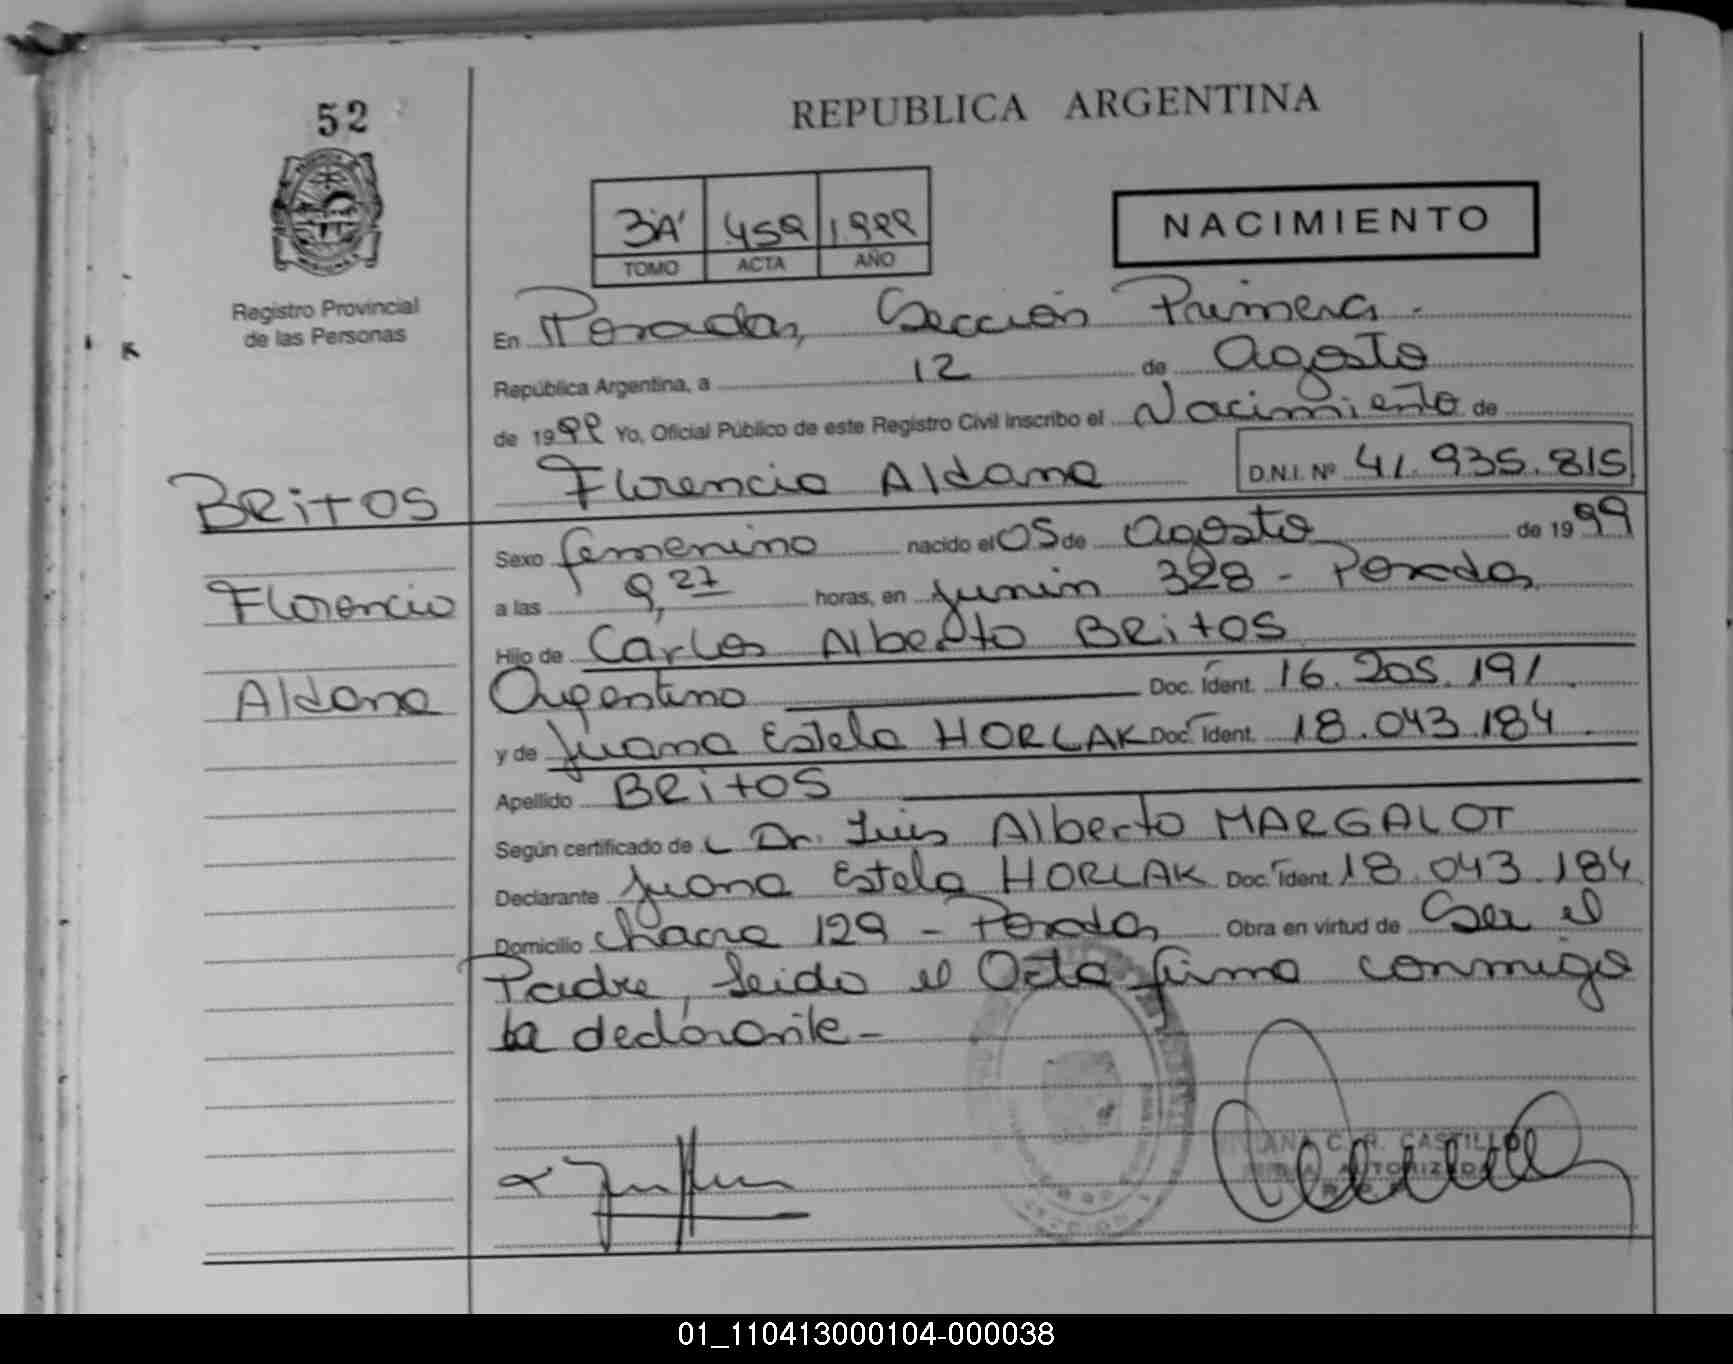 52
REPUBLICA ARGENTINA
3"A" 459 1.999
TOMO ACTA AÑO
NACIMIENTO
Registro Provincial
de las Personas
En Posadas, Sección Primera.
República Argentina, a 12 de Agosto
de 1999 Yo, Oficial Público de este Registro Civil Inscribo el Nacimiento de
BRITOS Florencia Aldana D.N.I. Nº 41.935.815
Sexo femenino nacido el 05 de Agosto de 1999
Florencia a las 9,27 horas, en Junín 328 - Posadas
Hijo de Carlos Alberto BRITOS
Aldana Argentino Doc. Ident. 16.205.191
y de Juana Estela HORLAK Doc. Ident. 18.043.184
Apellido BRITOS
Según certificado de Dr. Luis Alberto MARGALOT
Declarante Juana Estela HORLAK Doc. Ident. 18.043.184
Domicilio Chacra 129 - Posadas Obra en virtud de Ser el
Padre, leido el Acta firma conmigo
la declarante -
C. R. CASTILLO
AUTORIZADA
01_110413000104-000038